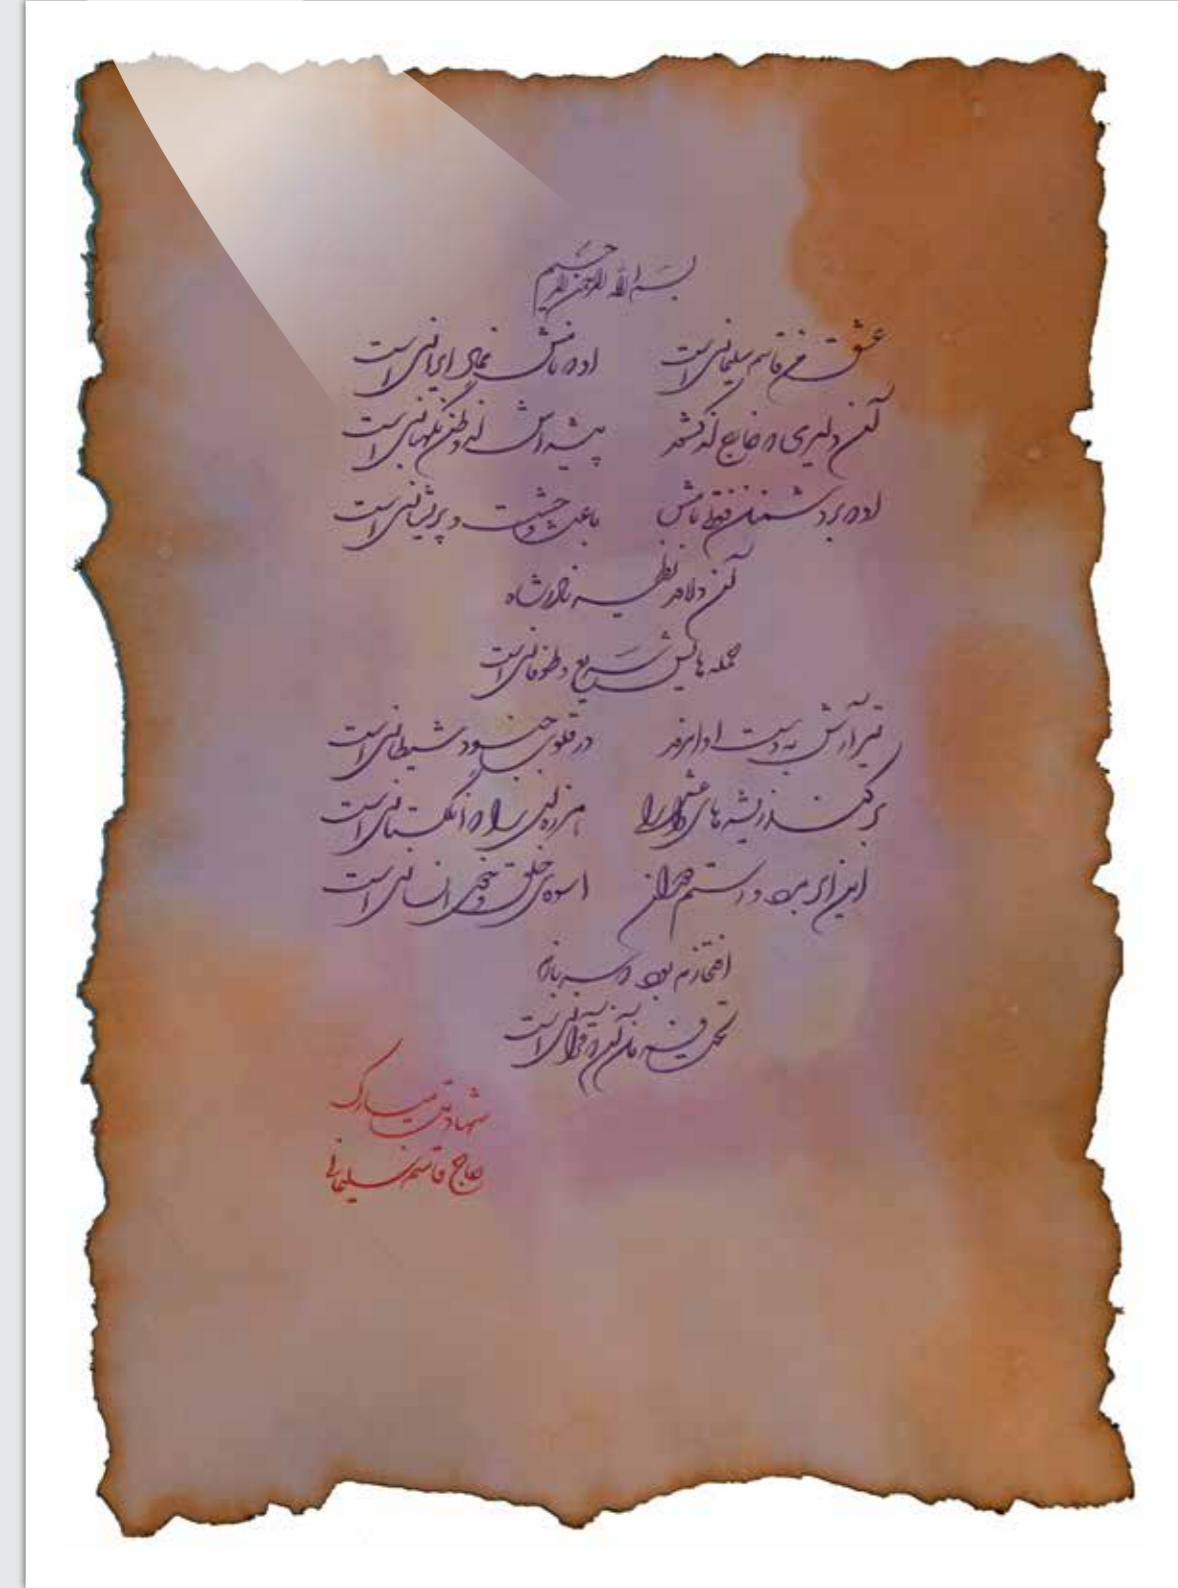 بسم الله الرحمن الرحیم
عشق من قاسم سلیمانی است او که نامش نماد ایرانی است
آن دلیری که خارج از کشور پیشه‌اش از وطن نگهبانی است
او که بر دشمنان فقط نامش باعث وحشت و پریشانی است
آن دلاور نظیر نادرشاه
حمله هایش سریع و طوفانی است
تیر آرش به دست او امروز در گلوی جنود شیطانی است
بر کند ریشه های را هر زمانی که در انگستانی است
این ابر مرد و رستم دوران اسوه‌ی خلق و خوی انسانی است
افتخارم بود که سربازم
تحت فرمان آن که قرآنی است
شهادتت مبارک
حاج قاسم سلیمانی